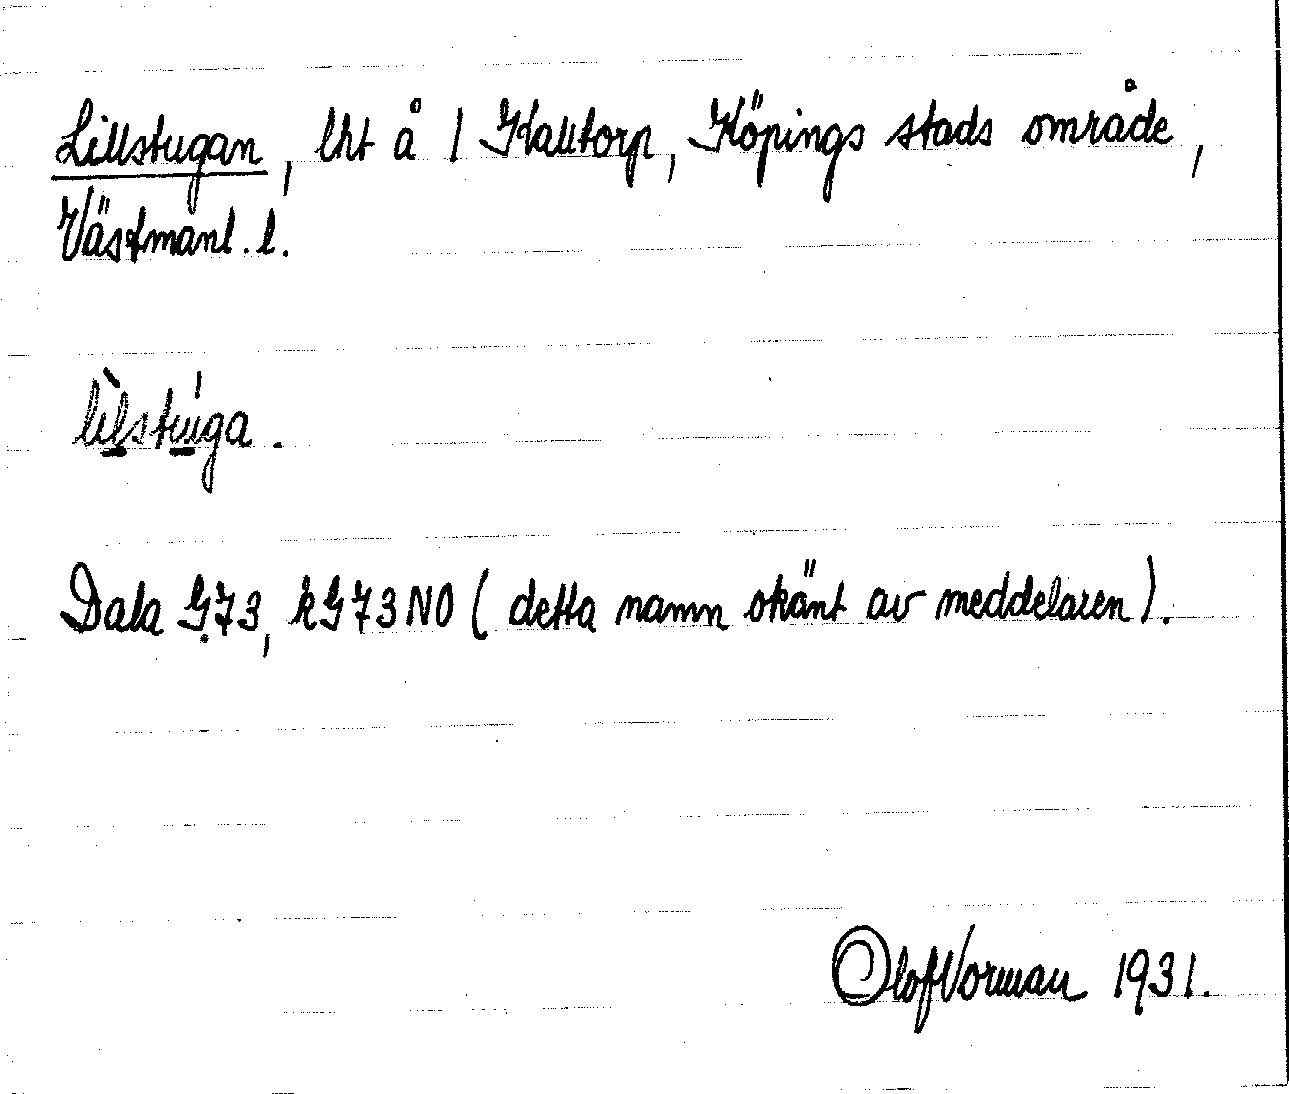 Lillstugan, lht å 1 Kalltorp, Köpings stads område,
Västmanl. l.
lìlstúga.
Data G73, kG73NO (detta namn okänt av meddelaren).
Olof Vorman 1931.